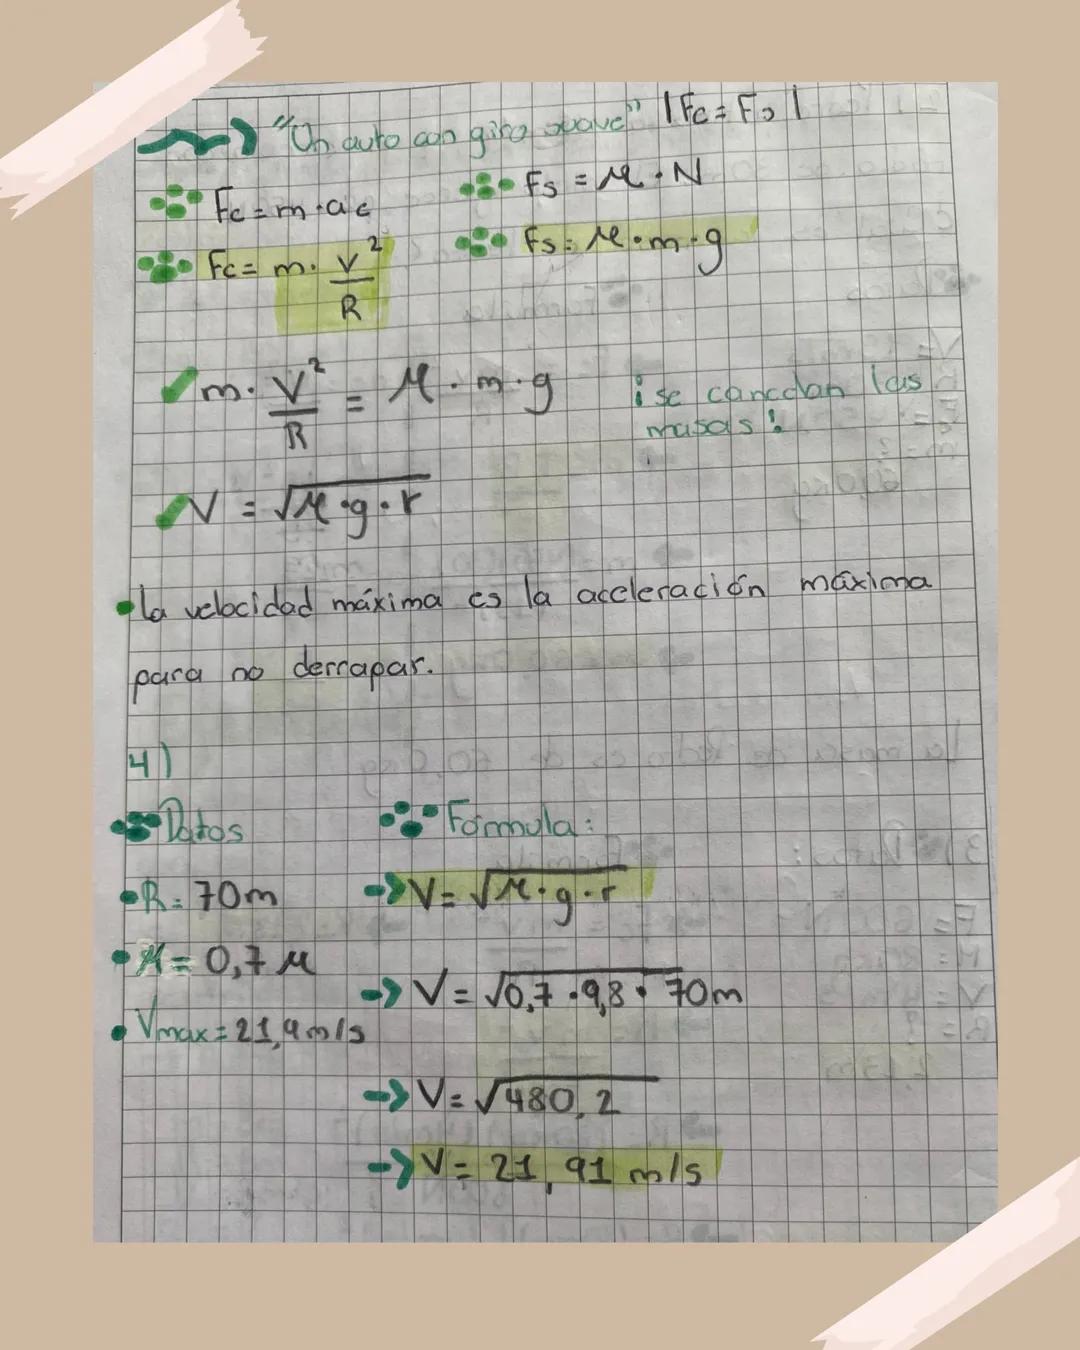 "Un auto con giro suave" |Fc = Fs|
Fc = m · ac
Fs = μ · N
Fc = m · V²/R
Fs = μ · m · g
m · V²/R = μ · m · g
¡se cancelan las
masas!
V = √μ · g · r
• la velocidad máxima es la acceleración máxima
para no derrapar.
4)
Datos
Formula:
• R = 70m
→ V = √μ · g · r
• μ = 0,7 μ
→ V = √0,7 · 9,8 · 70m
• Vmax = 21,9 m/s
→ V = √480,2
→ V = 21,91 m/s